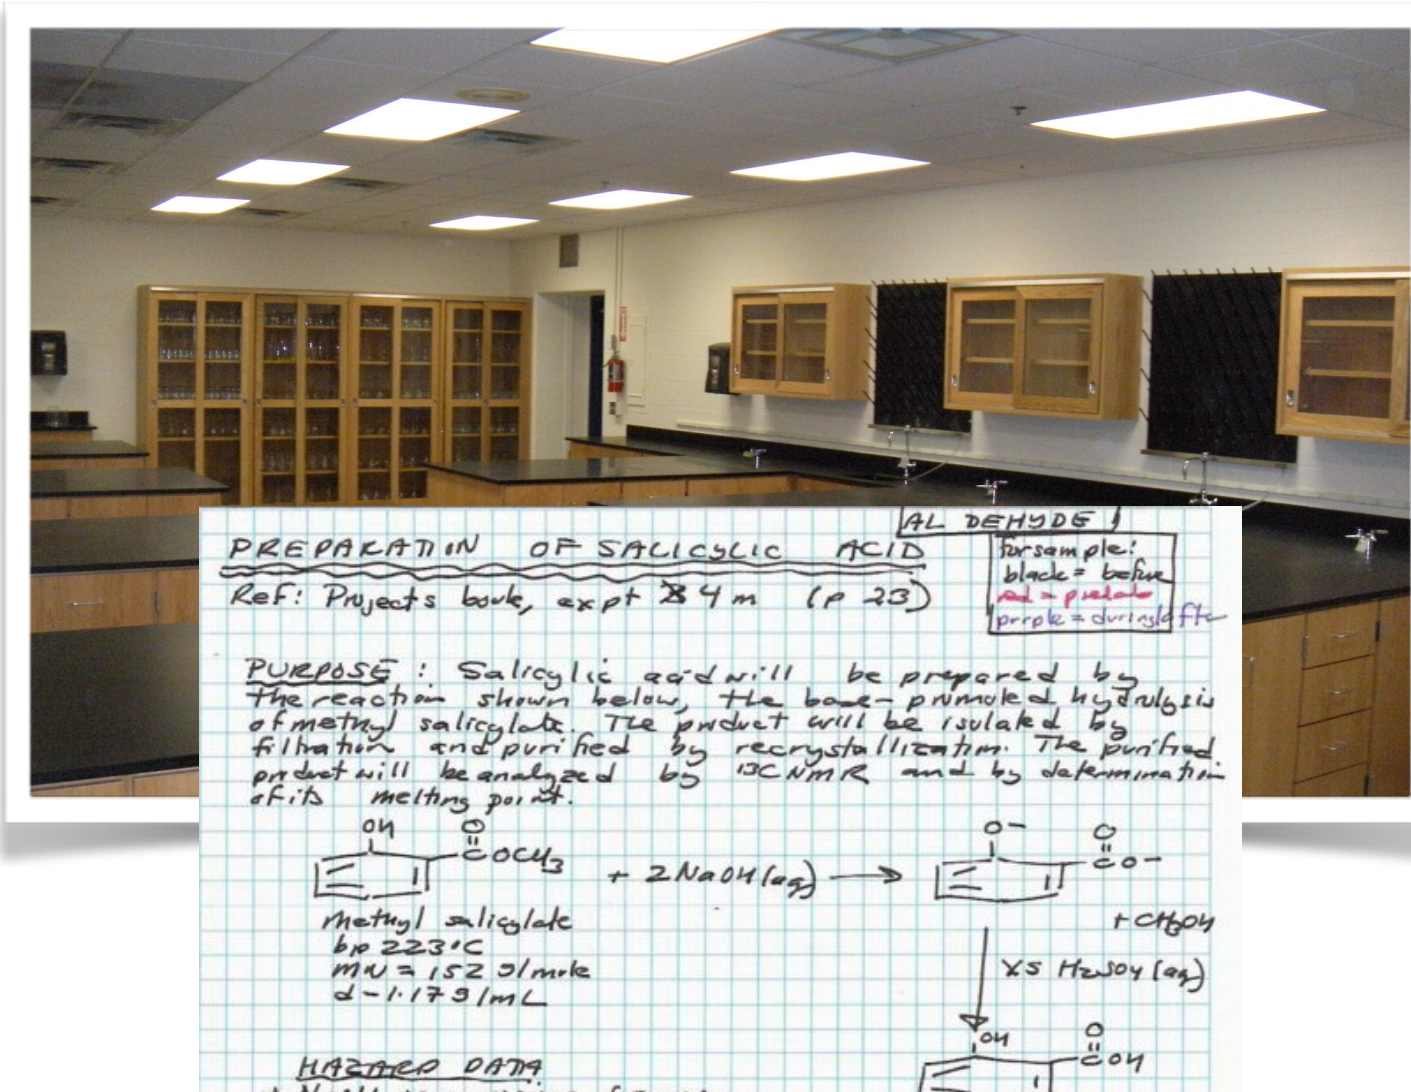 AL DEHYDE
PREPARATION OF SALICYLIC ACID
for sample:
black = before
red = prelab
purple = during/afte
Ref: Projects book, expt 4 m (p 23)
PURPOSE: Salicylic acid will be prepared by
the reaction shown below, the base-promoted hydrolysis
of methyl salicylate. The product will be isolated by
filtration and purified by recrystallization. The purified
product will be analyzed by 13C NMR and by determination
of its melting point.
OH O
C OCH3 + 2 NaOH (aq) →
O- O
C O-
+ CH3OH
methyl salicylate
bp 223°C
MW = 152 g/mole
d - 1.17 g/mL
XS H2SO4 (aq)
OH O
C OH
HAZARD DATA